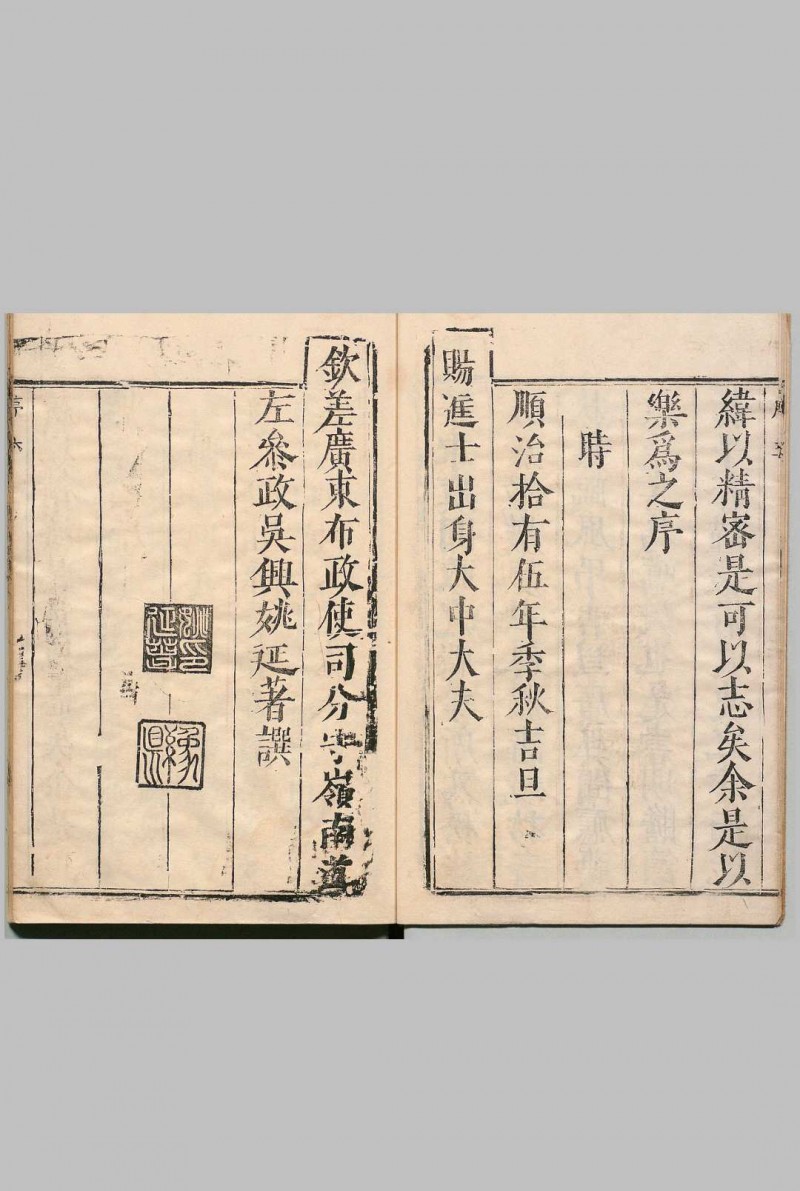 緯以精審是可以志矣余是以
樂爲之序
時
順治拾有伍年季秋吉旦
賜進士出身大中大夫
欽差廣東布政使司分守嶺南道
左叅政吳興姚延著譔
姚延著印